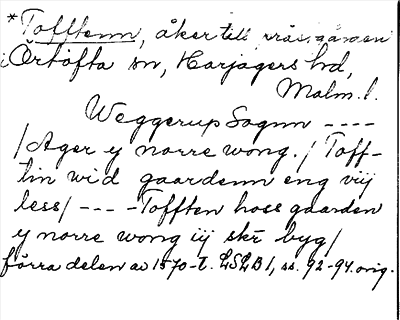 *Tofftenn, åker till prästgården
i Örtofta sn, Harjagers hd,
Malm. l.
Weggerup Sognn ----
/Ager y norre wong./ Toff-
tin wid gaardenn eng viij
less/ ---- Tofften hoss gaarden
y norre wong iij skr byg/
förra delen av 1570-t. LSLB 1, ss. 92-94. orig.